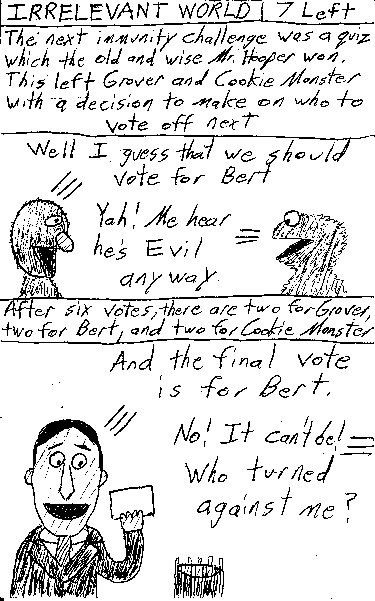 IRRELEVANT WORLD | 7 Left
The next immunity challenge was a quiz
which the old and wise Mr. Hooper won.
This left Grover and Cookie Monster
with a decision to make on who to
vote off next
Well I guess that we should
vote for Bert
Yah! Me hear
he's Evil
anyway.
After six votes, there are two for Grover,
two for Bert, and two for Cookie Monster
And the final vote
is for Bert.
No! It can't be!
Who turned
against me?